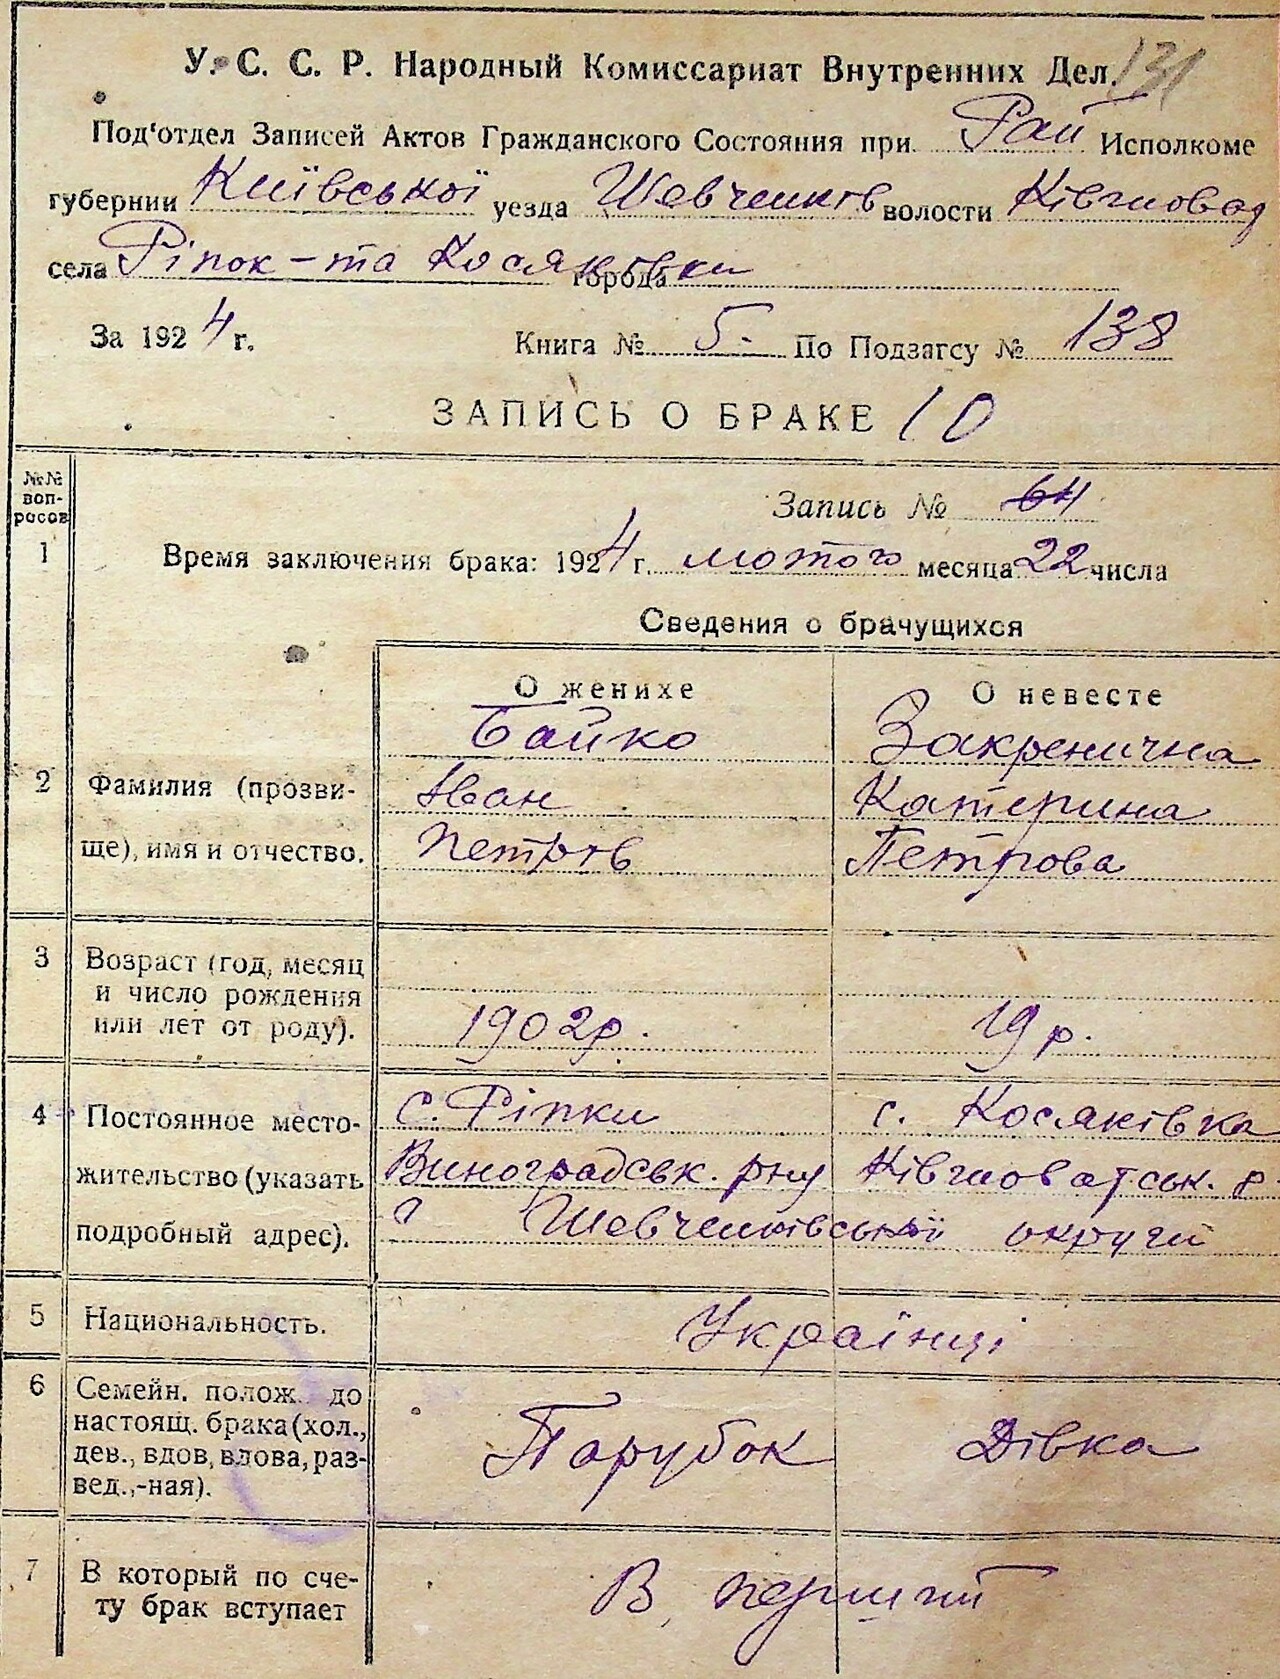 131
У. С. С. Р. Народный Комиссариат Внутренних Дел.
Под'отдел Записей Актов Гражданского Состояния при Рай Исполкоме
губернии Київської уезда Шевченків волости Ківшовод
села Ріпок-та Косяківки города
За 1924 г. Книга № 5. По Подзагсу № 138
ЗАПИСЬ О БРАКЕ 10
№№ воп-
росов
Запись № 64
1 Время заключения брака: 1924 г. лютого месяца 22 числа
Сведения о брачущихся
О женихе О невесте
Байко Закренична
2 Фамилия (прозви- Іван Катерина
ще), имя и отчество. Петрів Петрова
3 Возраст (год, месяц
и число рождения
или лет от роду). 1902р. 19 р.
4 Постоянное место- с. Ріпки с. Косяківка
жительство (указать Виноградськ. рну Ківшоватськ. р.
подробный адрес). Шевченківської округи
5 Национальность. Українці
6 Семейн. полож. до
настоящ. брака (хол., Парубок Дівка
дев., вдов, вдова, раз-
вед.,-ная).
7 В который по сче- В перший
ту брак вступает